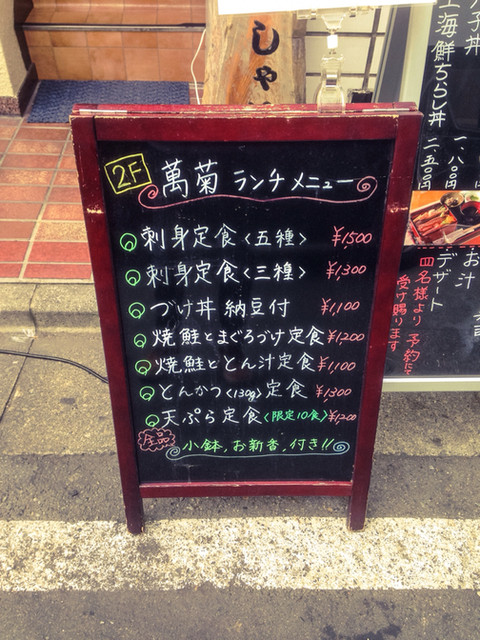 しゃ
2F 萬菊 ランチメニュー
刺身定食〈五種〉 ¥1500
刺身定食〈三種〉 ¥1,300
づけ丼 納豆付 ¥1,100
焼鮭とまぐろづけ定食 ¥1,200
焼鮭ととん汁定食 ¥1,100
とんかつ〈130g〉定食 ¥1,300
天ぷら定食〈限定10食〉¥1200
全品 小鉢、お新香、付き!!
子丼
海鮮ちらし丼
一、八〇円
二、五〇円
お汁
デザート
四名様より予約にて
受け賜ります